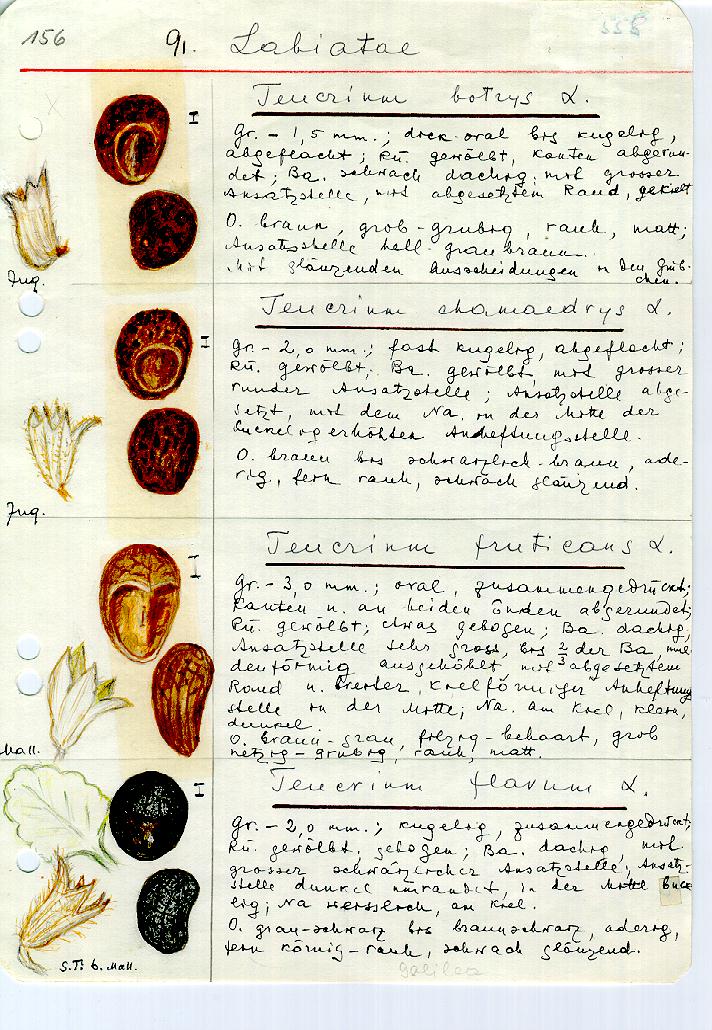 156
91. Labiatae
Teucrium botrys L.
Gr. - 1,5 mm.; dick-oval bis kugelig,
abgeflacht; Rü. gewölbt, Kanten abgerun-
det; Ba. schwach dachig mit grosser
Ansatzstelle, mit abgesetztem Rand, gekielt
O. braun, grob-grubig, rauh, matt;
Ansatzstelle hell-graubraun.
Mit glänzenden Ausscheidungen in den Grüb-
chen.
Jug.
Teucrium chamaedrys L.
Gr. - 2,0 mm.; fast kugelig, abgeflacht;
Rü. gewölbt; Ba. gewölbt, mit grosser
runder Ansatzstelle; Ansatzstelle abge-
setzt, mit dem Na. in der Mitte der
buckelig erhöhten Anheftungsstelle.
O. braun bis schwärzlich-braun, ade-
rig, fein rauh, schwach glänzend.
Jug.
Teucrium fruticans L.
Gr. - 3,0 mm.; oval, zusammengedrückt;
Kanten u. an beiden Enden abgerundet;
Rü. gewölbt; etwas gebogen; Ba. dachig,
Ansatzstelle sehr gross, bis 2/3 der Ba, mul-
denförmig ausgehöhlt mit abgesetztem
Rand u. breiter, kielförmiger Anheftung
stelle in der Mitte; Na. am Kiel, klein,
dunkel.
O. braun-grau, filzig-behaart, grob
netzig-grubig, rauh, matt.
Mall.
Teucrium flavum L.
Gr. - 2,0 mm.; kugelig, zusammengedrückt;
Rü. gewölbt, gebogen; Ba. dachig, mit
grosser schwärzlicher Ansatzstelle; Ansatz-
stelle dunkel umrandet, in der Mitte buck
elig; Na weisslich, am Kiel.
O. grau-schwarz bis braunschwarz, aderig,
fein körnig-rauh, schwach glänzend.
S.T. b. Mall.
galilea